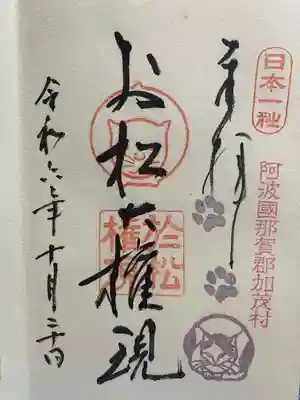 日本一社
阿波國那賀郡加茂村
奉拝
お松大権現
於松権現
令和六年十月二十日